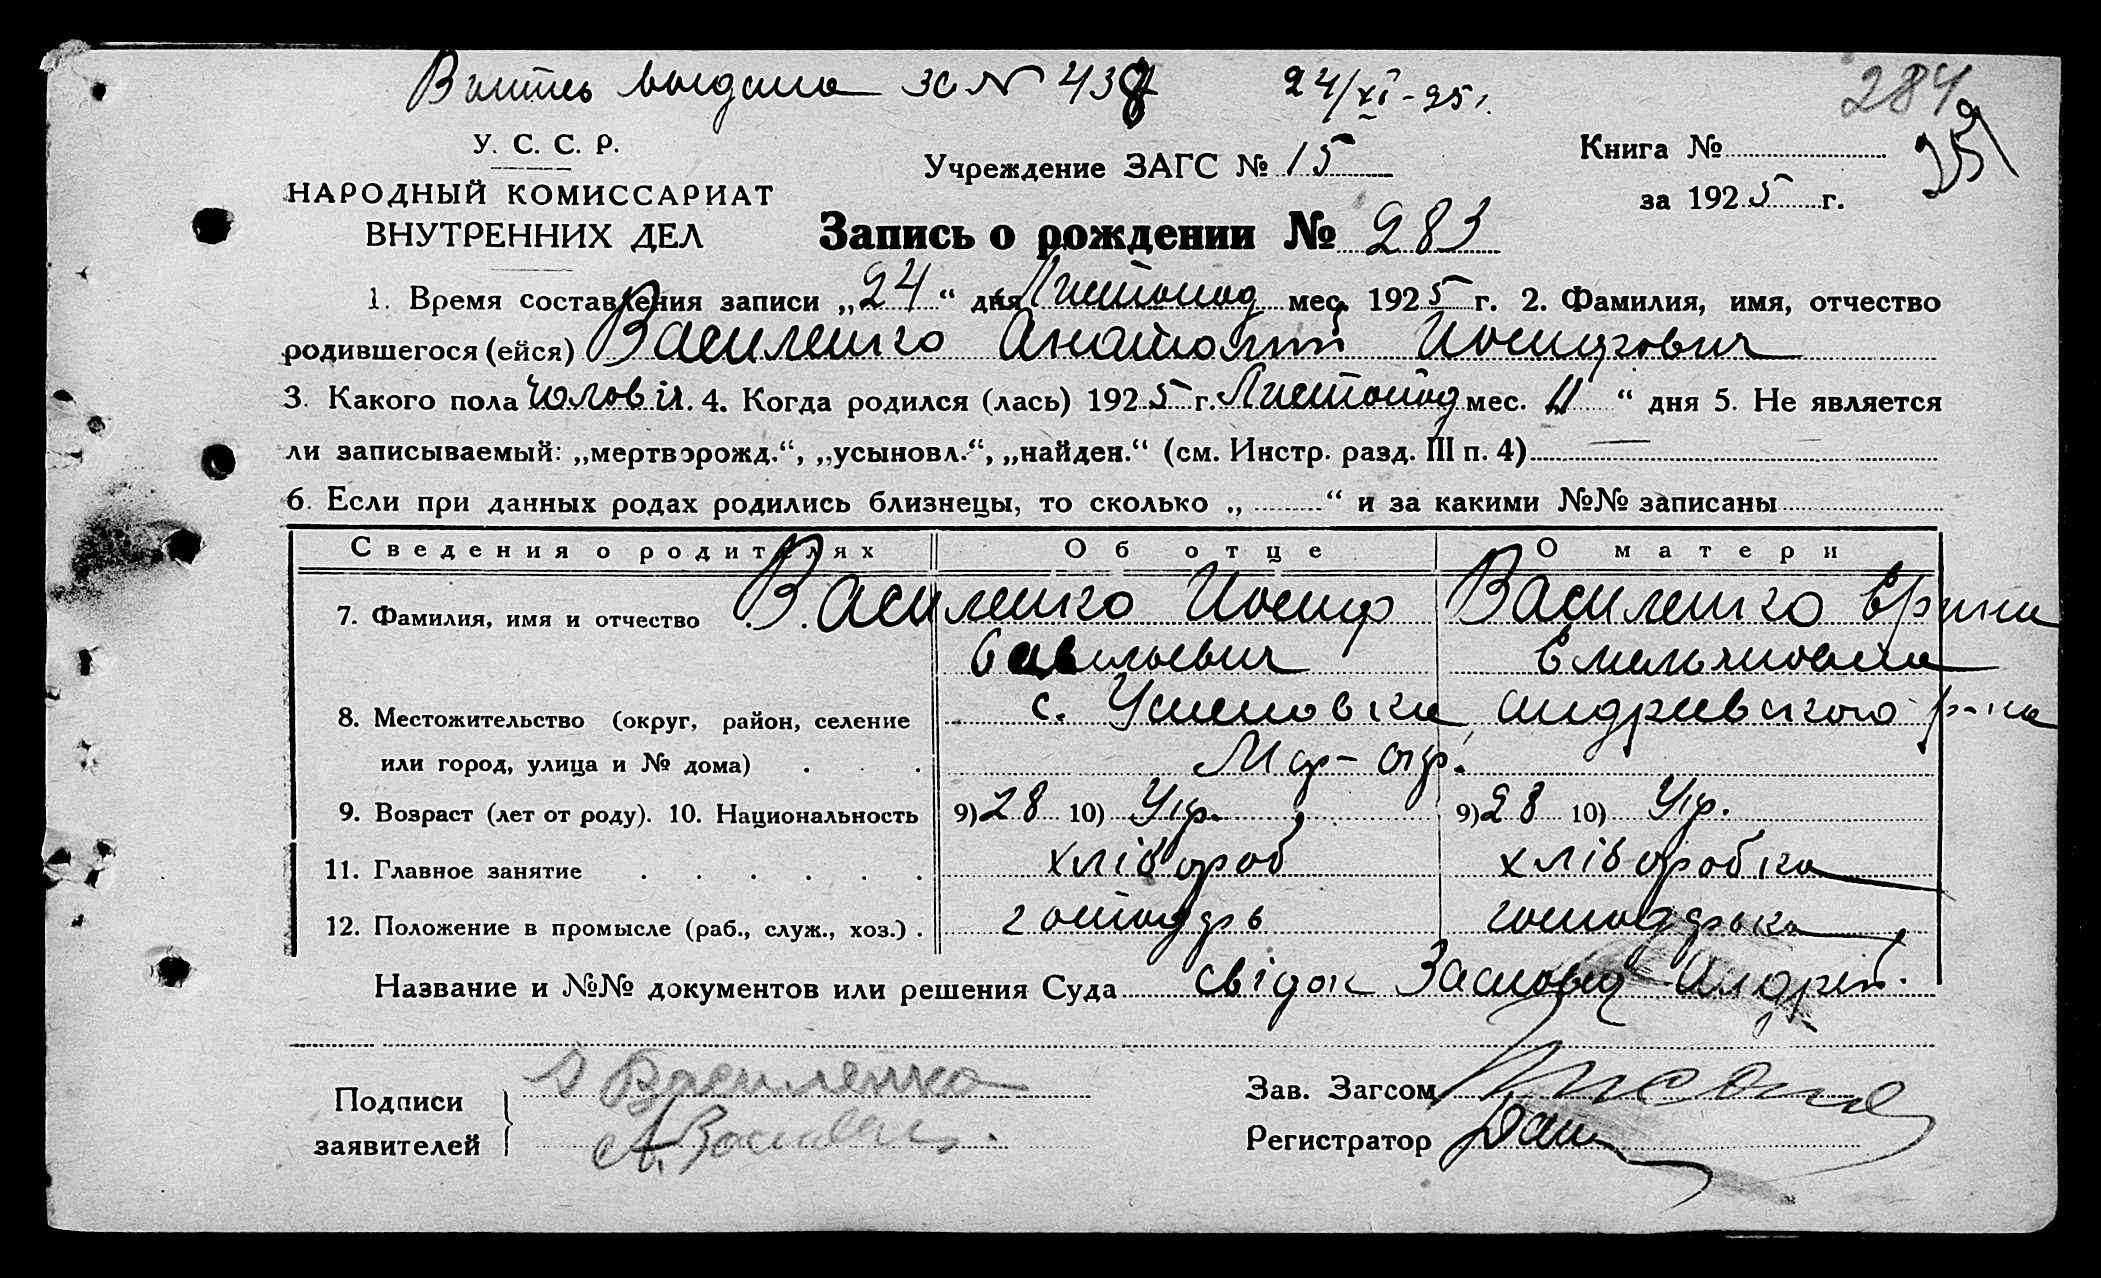 выдана за № 438 24/XI-25 г. 284
251
У. С. С. Р.
НАРОДНЫЙ КОМИССАРИАТ
ВНУТРЕННИХ ДЕЛ
Учреждение ЗАГС № 15
Книга №
за 1925 г.
Запись о рождении № 283
1. Время составления записи „24“ дня Листопад мес. 1925 г. 2. Фамилия, имя, отчество
родившегося (ейся) Василенко Анатолий Иосифович
3. Какого пола чоловіч. 4. Когда родился (лась) 1925 г. Листопад мес. 11 “ дня 5. Не является
ли записываемый: „мертворожд.“, „усыновл.“, „найден.“ (см. Инстр. разд. III п. 4) —
6. Если при данных родах родились близнецы, то сколько „ “ и за какими №№ записаны
Сведения о родителях Об отце О матери
7. Фамилия, имя и отчество Василенко Иосиф Василенко Ерина
Савельевич Емельяновна
8. Местожительство (округ, район, селение с. Успеновка Андриевского р-на
или город, улица и № дома) Мар-окр.
9. Возраст (лет от роду). 10. Национальность 9) 28 10) Укр. 9) 28 10) Укр.
11. Главное занятие хлібороб хліборобка
12. Положение в промысле (раб., служ., хоз.) господарь господарька
Название и №№ документов или решения Суда свідок Андрій.
Подписи
заявителей
Василенко
Зав. Загсом
Регистратор